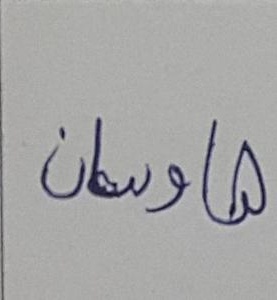 هاوسمان